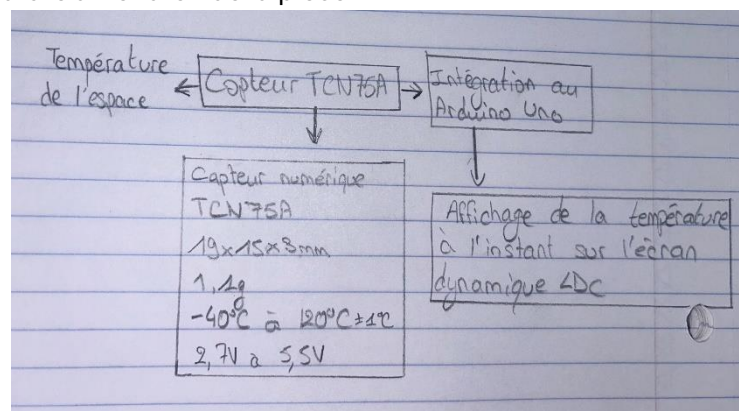 Température
de l'espace
Copteur TCN75A
Intégration au
Arduino Uno
Capteur numérique
TCN75A
19x15x3mm
1,1g
-40°C à 120°C±1°C
2,7V à 5,5V
Affichage de la température
à l'instant sur l'écran
dynamique LDC